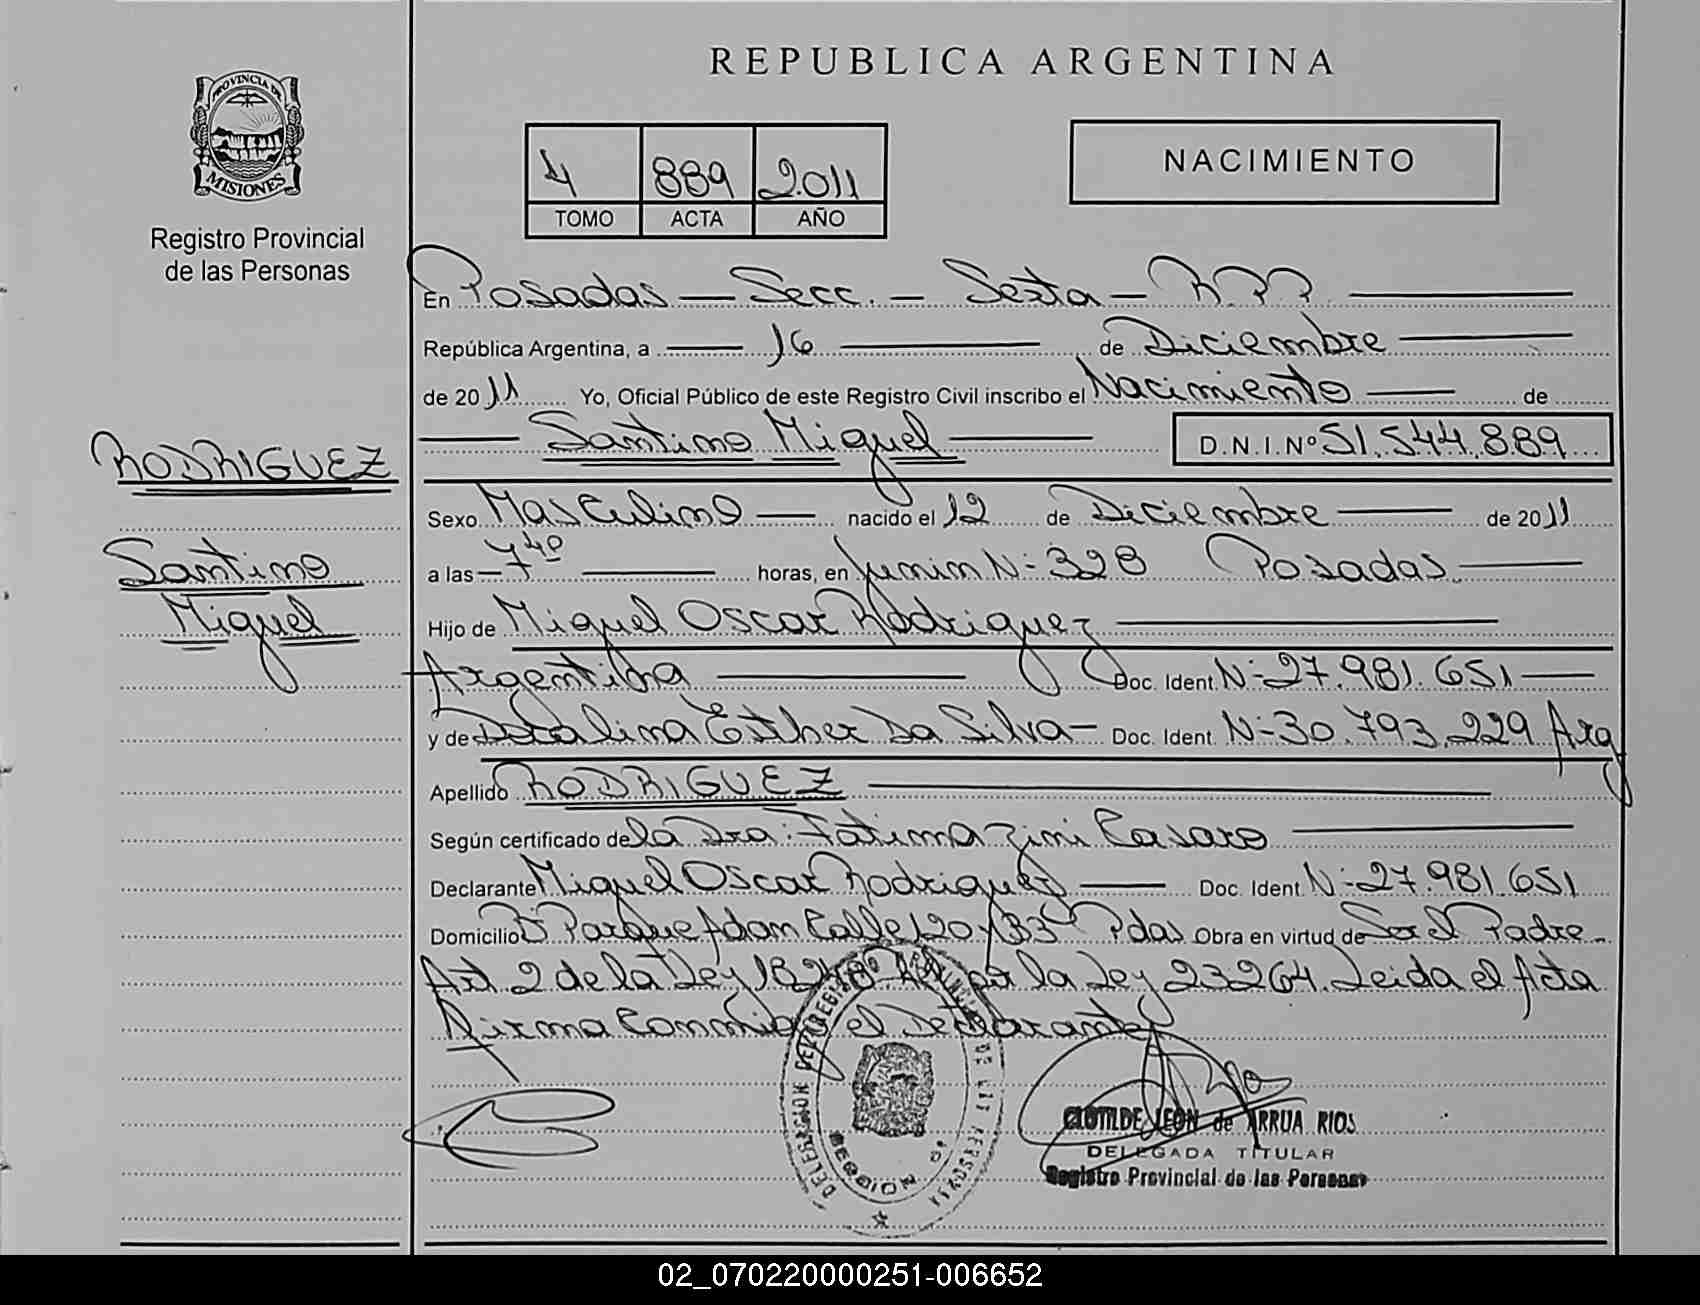 REPUBLICA ARGENTINA
PROVINCIA DE
MISIONES
Registro Provincial
de las Personas
4 889 2.011
TOMO ACTA AÑO
NACIMIENTO
En Posadas — Secc. — Sexta — R.P.P.
República Argentina, a — 16 — de Diciembre —
de 2011 Yo, Oficial Público de este Registro Civil inscribo el Nacimiento — de
— Santino Miguel — D.N.I. Nº 51.544.889
RODRIGUEZ
Santino
Miguel
Sexo Masculino — nacido el 12 de Diciembre — de 2011
a las — 7 40 — horas, en Junin N- 328 Posadas —
Hijo de Miguel Oscar Rodriguez —
Argentina — Doc. Ident. N- 27.981.651 —
y de Esther Da Silva — Doc. Ident. N- 30.793.229 Arg
Apellido RODRIGUEZ —
Según certificado de la Dra: Fatima Zini Casaro —
Declarante Miguel Oscar Rodriguez — Doc. Ident. N- 27.981.651
Domicilio Bº Parque Adam Calle 120 /133 Pdas Obra en virtud de Ser el Padre -
Art. 2 de la Ley la Ley 23264. Leida el Acta
Firma Conmigo el Declarante
DELEGACION REGISTRO PROVINCIAL DE LAS PERSONAS
SECCION 6º
CLOTILDE LEON de ARRUA RIOS
DELEGADA TITULAR
Registro Provincial de las Personas
02_070220000251-006652